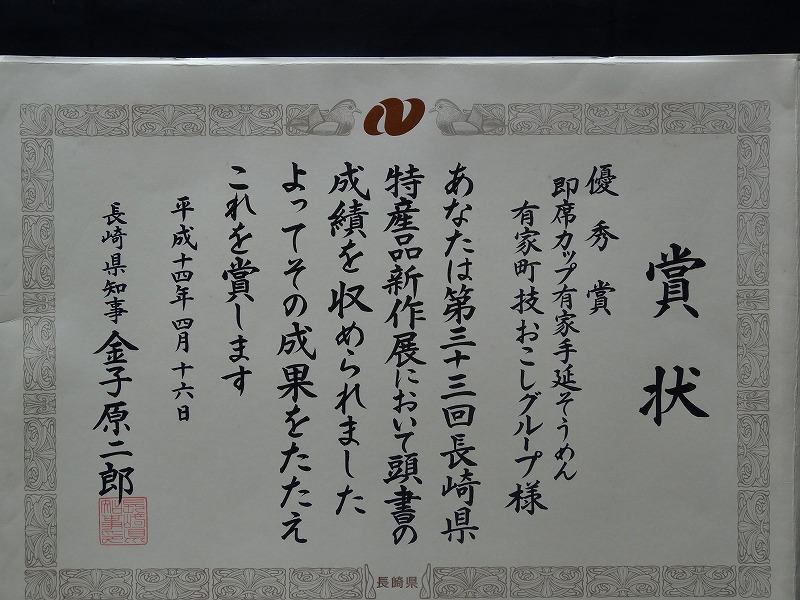 賞状
優秀賞
即席カップ有家手延そうめん
有家町技おこしグループ様
あなたは第三十三回長崎県
特産品新作展において頭書の
成績を収められました
よってその成果をたたえ
これを賞します
平成十四年四月十六日
長崎県知事 金子原二郎
長崎県